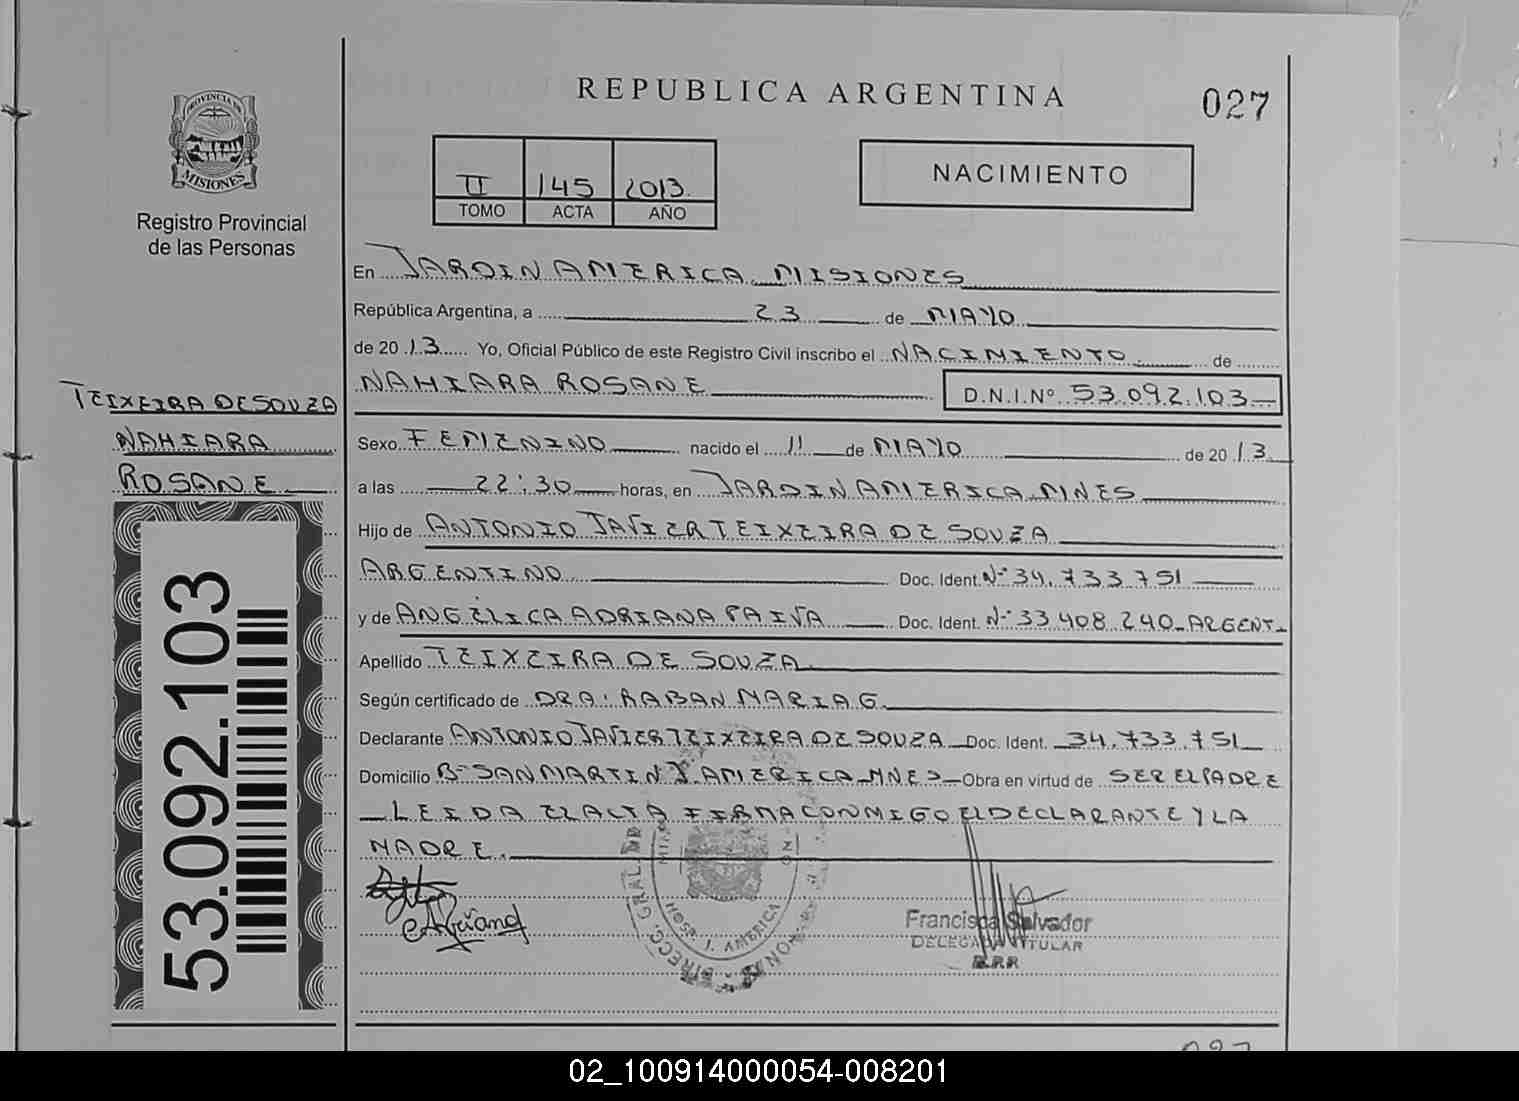 REPUBLICA ARGENTINA
027
PROVINCIA DE
MISIONES
Registro Provincial
de las Personas
II 145 2013
TOMO ACTA AÑO
NACIMIENTO
En JARDIN AMERICA MISIONES
República Argentina, a 23 de MAYO
de 2013 Yo, Oficial Público de este Registro Civil inscribo el NACIMIENTO de
NAHIARA ROSANE D.N.I.Nº 53.092.103
TEIXEIRA DE SOUZA
NAHIARA
ROSANE
53.092.103
Sexo FEMENINO nacido el 11 de MAYO de 2013
a las 22:30 horas, en JARDIN AMERICA MNES
Hijo de ANTONIO JAVIER TEIXEIRA DE SOUZA
ARGENTINO Doc. Ident. Nº 34.733.751
y de ANGÉLICA ADRIANA PAIVA Doc. Ident. Nº 33.408.240 ARGENT
Apellido TEIXEIRA DE SOUZA
Según certificado de DRA: RABAN MARIA G
Declarante ANTONIO JAVIER TEIXEIRA DE SOUZA Doc. Ident. 34.733.751
Domicilio Bº SAN MARTIN J AMERICA MNES Obra en virtud de SER EL PADRE
LEIDA EL ACTA FIRMA CONMIGO EL DECLARANTE Y LA
MADRE
DIRECC. GRAL. DE
HOSP. J. AMERICA
Francisca Salvador
DELEGADA TITULAR
R.P.P
02_100914000054-008201